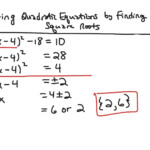 ing Quadratic Equations by Finding
Square Roots
(x-4)² - 18 = 10
(x-4)² = 28
(x-4)² = 4
x-4 = ±2
x = 4±2
= 6 or 2 {2,6}